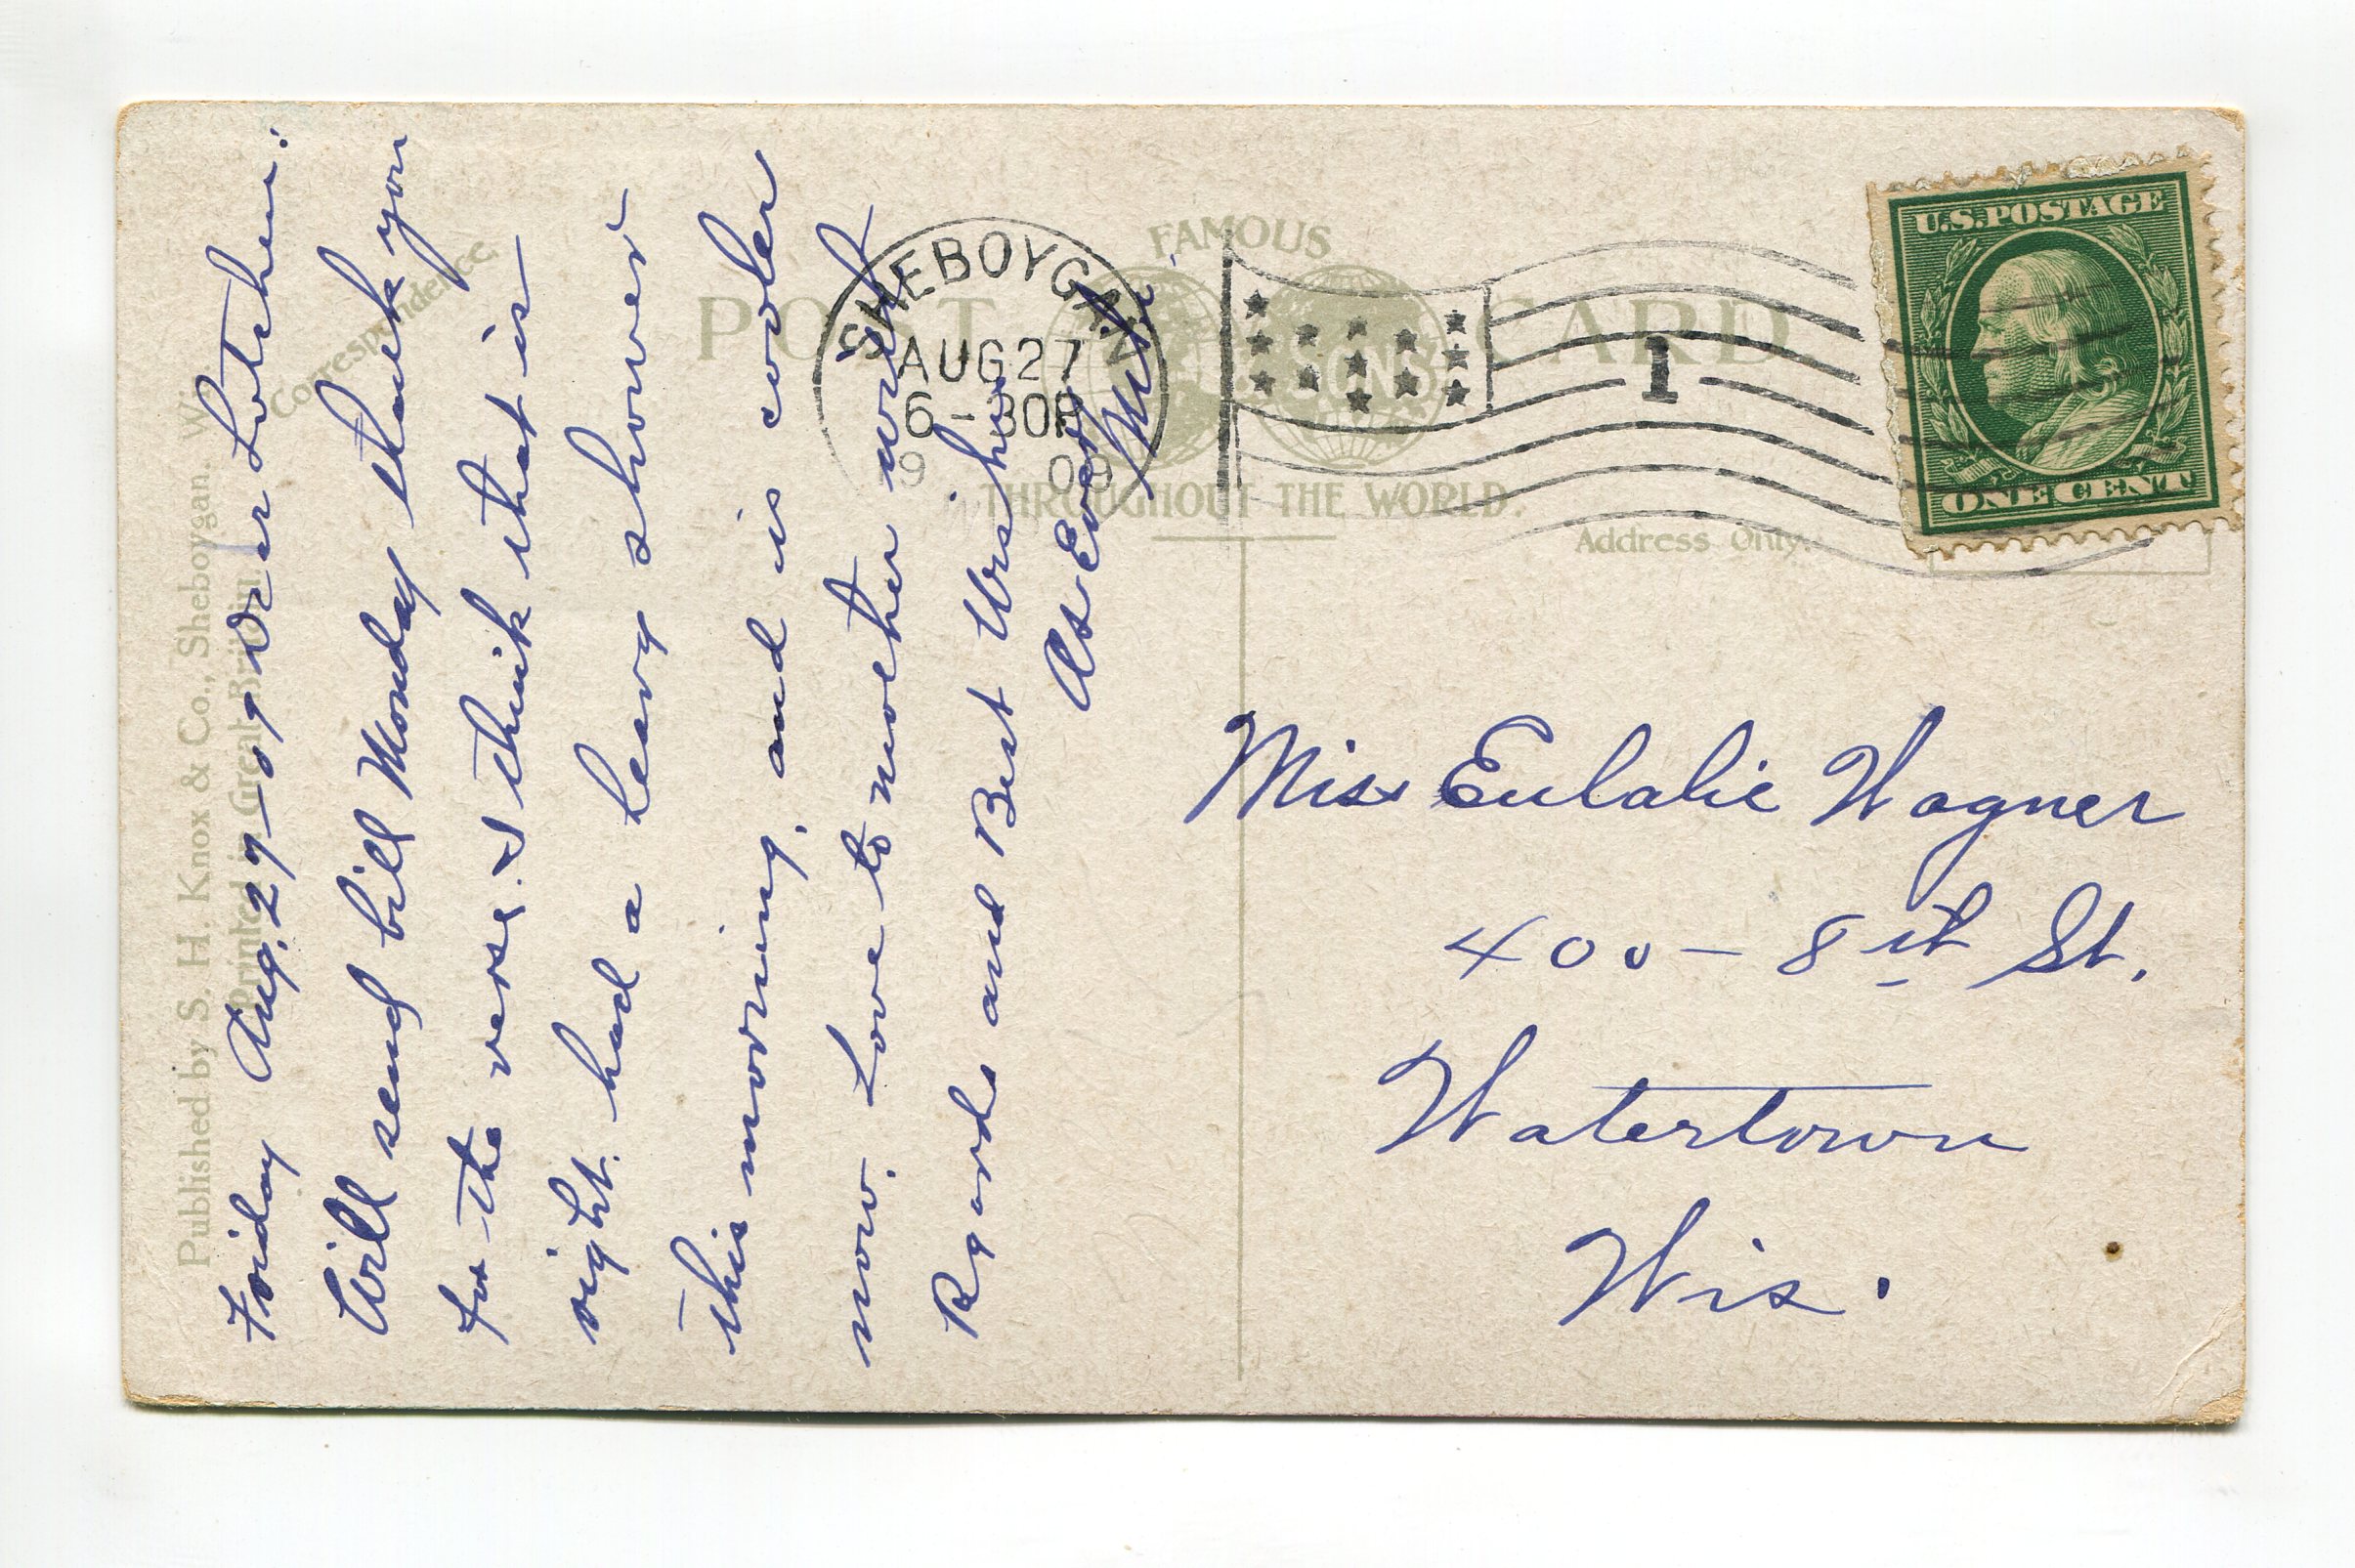 Published by S. H. Knox & Co., Sheboygan. Wis.
Printed in Great Britain.
Correspondence.
Friday Aug. 27-09 Dear
Will send bill Monday thank you
for the verse. I think that is
right. had a heavy shower
this morning. and is cooler
now. Love to mother with
Rgards and Best Wishes
As Ever
FAMOUS
POST CARD.
SIGNS
THROUGHOUT THE WORLD.
Address Only.
SHEBOYGAN
AUG 27
6-30P
1
U.S. POSTAGE
ONE CENT
Miss Eulalie Wagner
400 - 8th St.
Watertown
Wis.